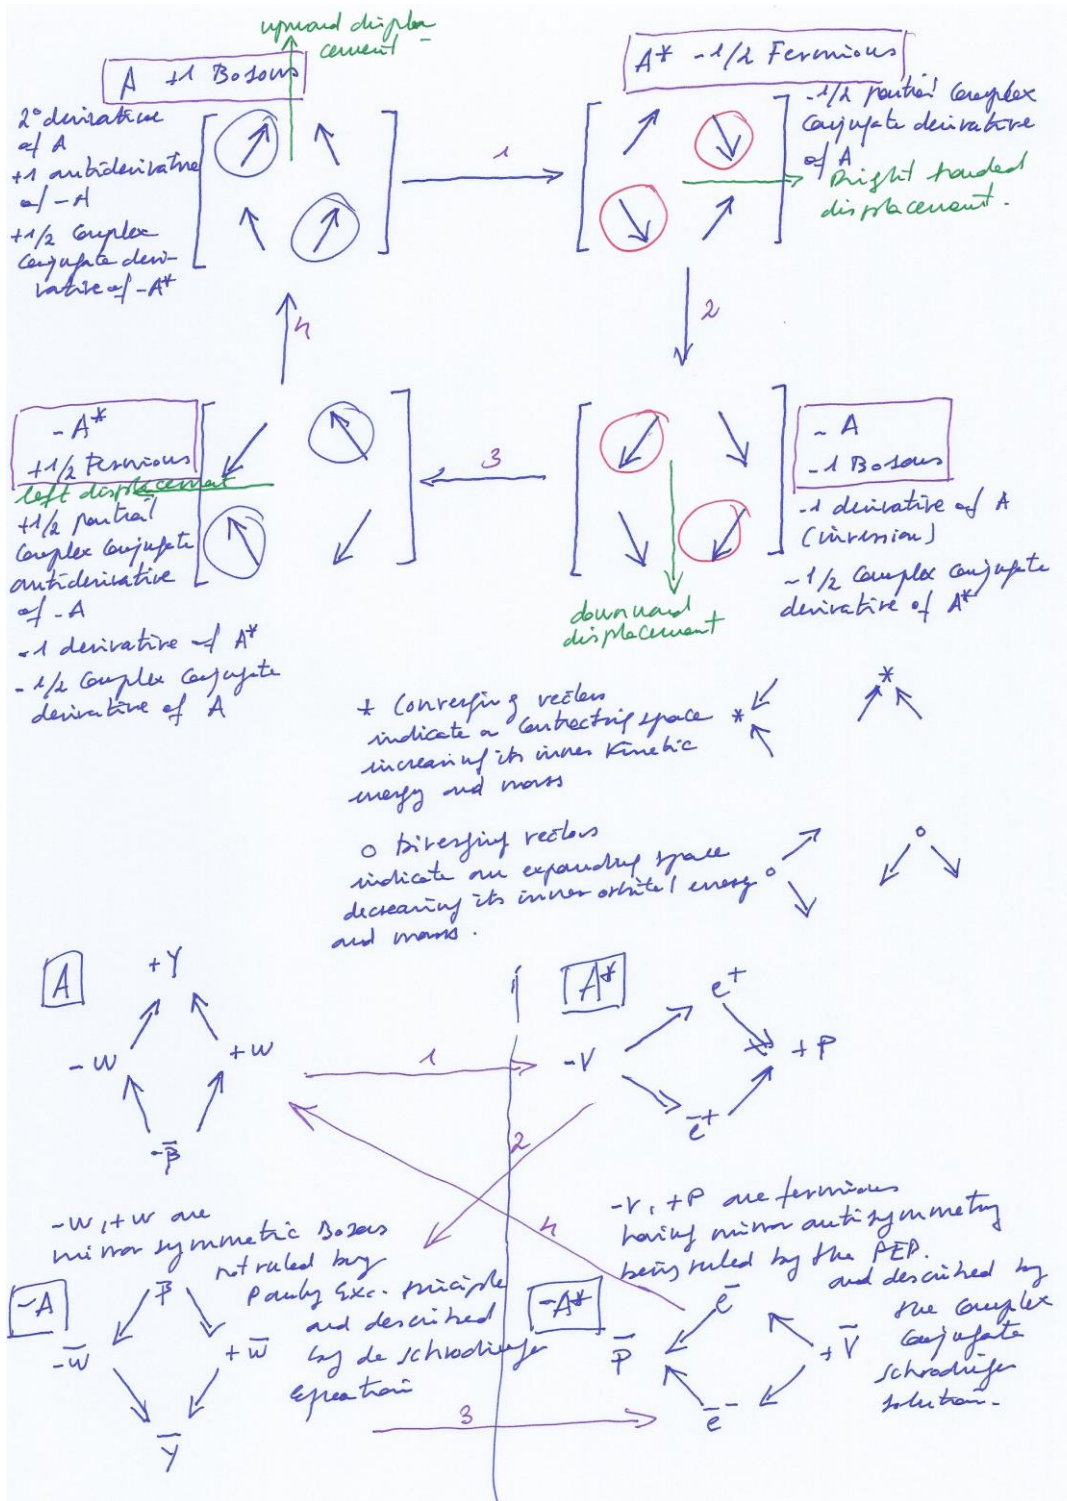 upward displa
cement
A +1 Bosons
2º derivative
of A
+1 antiderivative
of -A
+1/2 Complex
Conjugate deri-
vative of -A*
1
A* -1/2 Fermions
-1/2 partial Complex
Conjugate derivative
of A
Right handed
displacement.
2
4
-A*
+1/2 Fermions
left displacement
+1/2 partial
Complex Conjugate
antiderivative
of -A
-1 derivative of A*
-1/2 Complex Conjugate
derivative of A
3
-A
-1 Bosons
-1 derivative of A
(inversion)
-1/2 Complex Conjugate
derivative of A*
downward
displacement
* Converging vectors
indicate a contracting space
increasing its inner kinetic
energy and mass
*
*
o Diverging vectors
indicate an expanding space
decreasing its inner orbital energy
and mass.
o
o
A
+Y
-W
+W
-β̅
1
A*
e+
-V
+P
e̅+
2
4
-W, +W are
mirror symmetric Bosons
not ruled by
Pauly Exc. principle
and described
by de Schrodinger
Equation
-V, +P are fermions
having mirror antisymmetry
being ruled by the PEP.
and described by
the Complex
Conjugate
Schrodinger
solution.
-A
β̅
-W̅
+W̅
Y̅
3
-A*
e̅
P̅
+V̅
e̅-